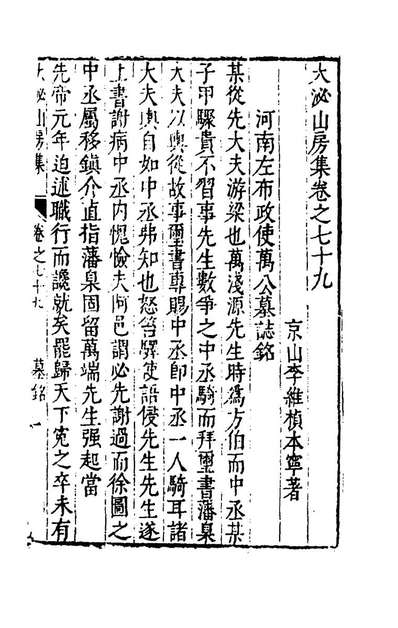 大泌山房集卷之七十九
京山李維楨本寧著
河南左布政使萬公墓誌銘
某從先大夫游梁也萬淺源先生時爲方伯而中丞某
子甲驟貴不習事先生數爭之中丞騎而拜璽書藩臬
大夫以輿從故事璽書專賜中丞即中丞一人騎耳諸
大夫輿自如中丞弗知也怒笞驛使語侵先生先生遂
上書謝病中丞内愧愉夫阿邑謂必先謝過而徐圖之
中丞屬移鎮介直指藩臬固留萬端先生强起當
先帝元年迫述職行而讒就矣罷歸天下寃之卒未有
大泌山房集
卷之七十九
墓銘
一